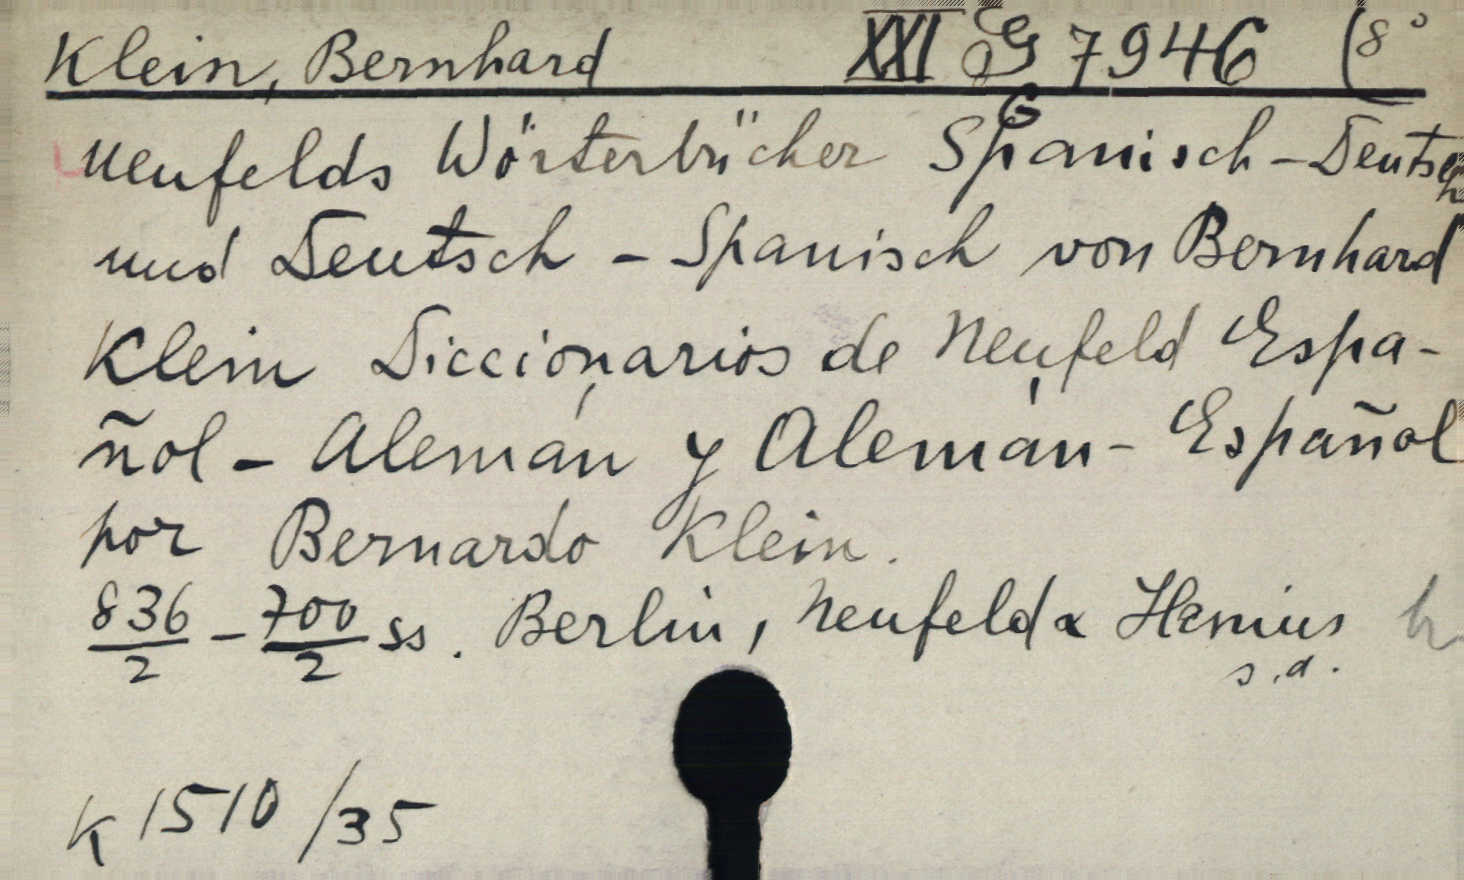 Klein, Bernhard XXI G 7946 (8°
G
Neufelds Wörterbücher Spanisch-Deutsch
und Deutsch - Spanisch von Bernhard
Klein Diccionarios de Neufeld Espa-
ñol - Alemán y Alemán - Español
por Bernardo Klein.
836/2 - 700/2 ss. Berlin, Neufeld & Henius
s.d.
K 1510/35